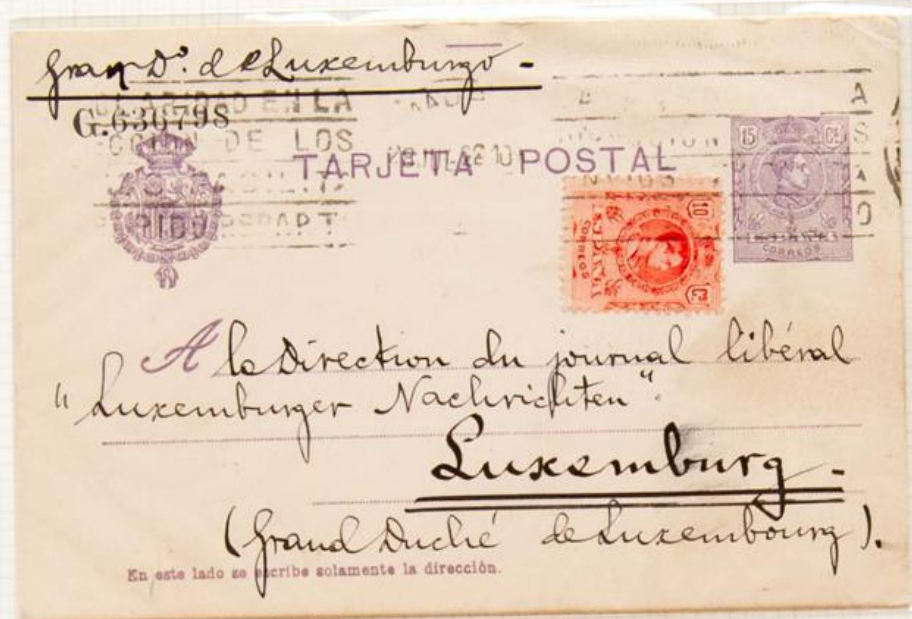 Gran D°. de Luxemburgo -
CLARIDAD EN LA
G.636798
DE LOS
TARJETA POSTAL
15 Cs.
10 Cs.
CORREOS
CORREOS
REPART
A la Direction du journal libéral
"Luxemburger Nachrichten".
Luxemburg -
(Grand Duché de Luxembourg).
En este lado se escribe solamente la dirección.